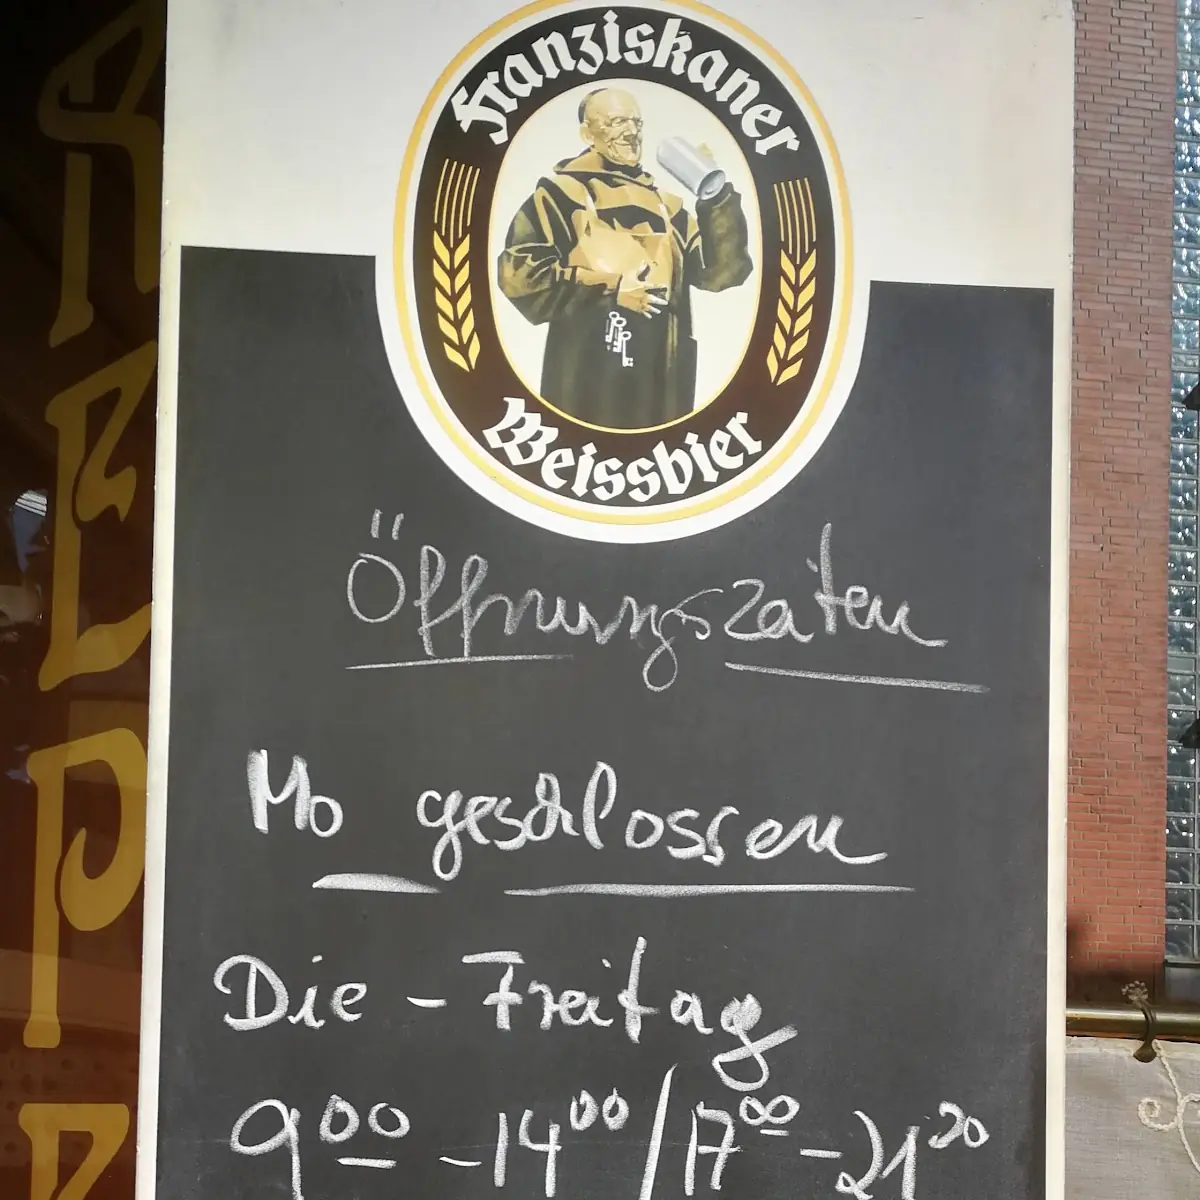 Franziskaner
Weissbier
Öffnungszeiten
Mo geschlossen
Die - Freitag
9⁰⁰ - 14⁰⁰ / 17⁰⁰ - 21³⁰